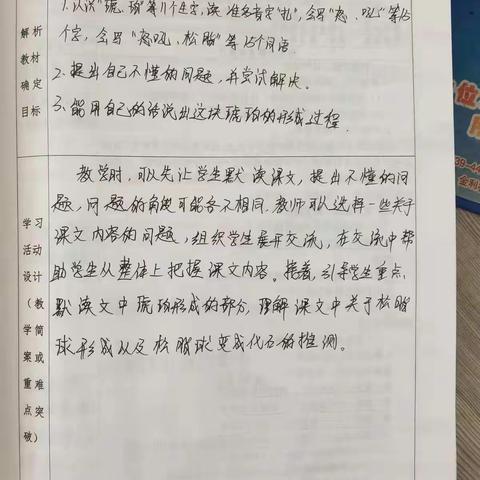 解析
教材
确定
目标
1.认识"琥、珀"等11个生字,读准多音字"扎",会写"怒、吼"等15
个字,会写"怒吼、松脂"等15个词语
2.提出自己不懂的问题,并尝试解决。
3.能用自己的话说出这块琥珀的形成过程.
学习
活动
设计
(教
学简
案或
重难
点突
破)
教学时,可以先让学生默读课文,提出不懂的问
题,问题的角度可能各不相同.教师可以选择一些关于
课文内容的问题,组织学生展开交流,在交流中帮
助学生从整体上把握课文内容。接着,引导学生重点
默读文中琥珀形成的部分,理解课文中关于松脂
球形成以及松脂球变成化石的推测。
位